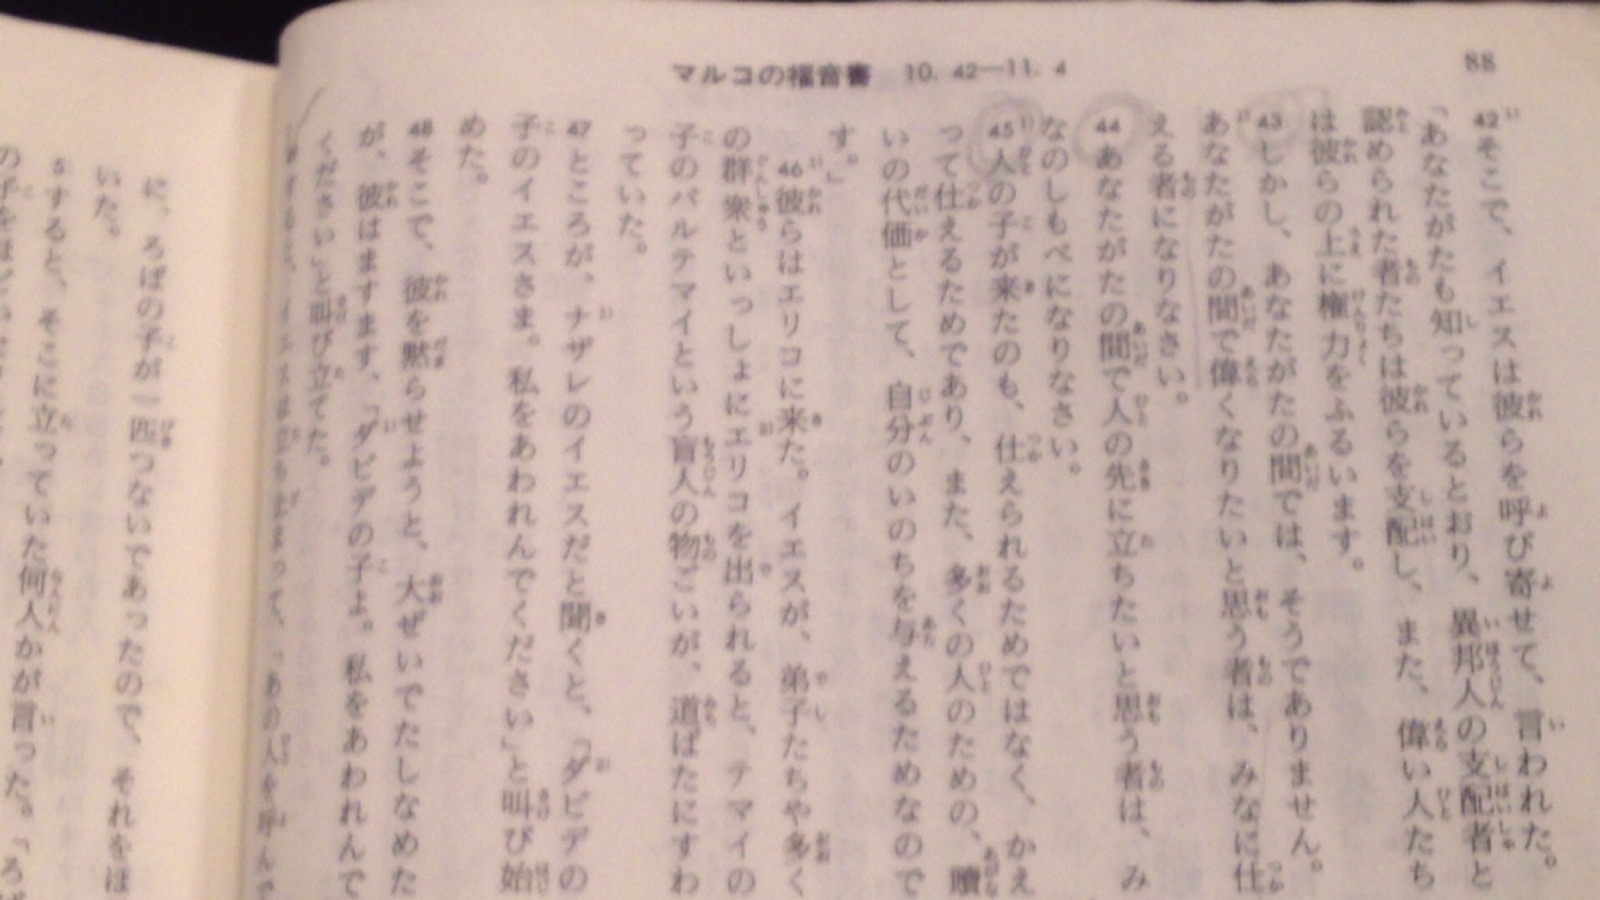 マルコの福音書 10. 42―11. 4
88
42そこで、イエスは彼らを呼び寄せて、言われた。
「あなたがたも知っているとおり、異邦人の支配者と
認められた者たちは彼らを支配し、また、偉い人たち
は彼らの上に権力をふるいます。
43しかし、あなたがたの間では、そうでありません。
あなたがたの間で偉くなりたいと思う者は、みなに仕
える者になりなさい。
44あなたがたの間で人の先に立ちたいと思う者は、み
なのしもべになりなさい。
45人の子が来たのも、仕えられるためではなく、かえ
って仕えるためであり、また、多くの人のための、贖
いの代価として、自分のいのちを与えるためなので
す。」
46彼らはエリコに来た。イエスが、弟子たちや多く
の群衆といっしょにエリコを出られると、テマイの
子のバルテマイという盲人の物ごいが、道ばたにすわ
っていた。
47ところが、ナザレのイエスだと聞くと、「ダビデの
子のイエスさま。私をあわれんでください」と叫び始
めた。
48そこで、彼を黙らせようと、大ぜいでたしなめた
が、彼はますます、「ダビデの子よ。私をあわれんで
ください」と叫び立てた。
って、「あの人を呼んで
に、ろばの子が一匹つないであったので、それをほ
いた。
5すると、そこに立っていた何人かが言った。「ろば
の子をほどいた